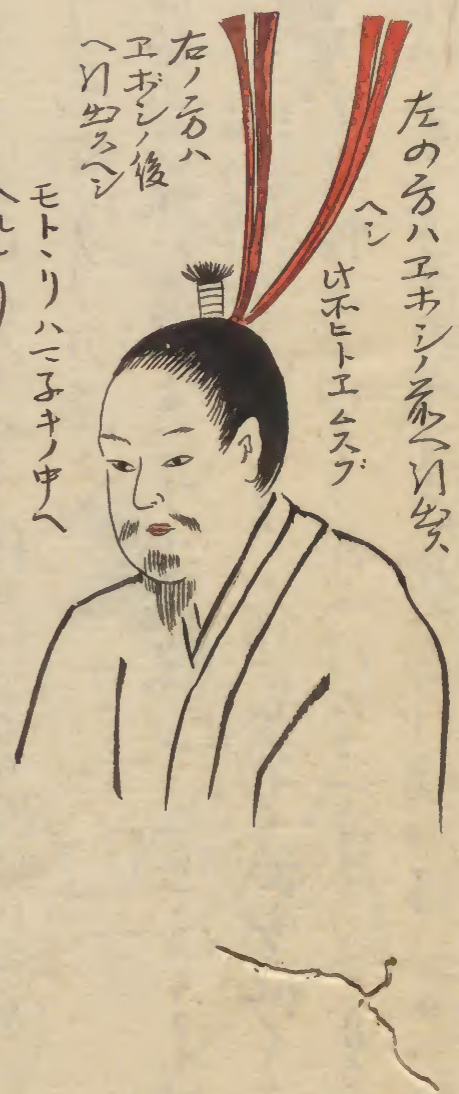 左の方ハヱホシノ前ヘ引出ス
ヘシ
此所ヒトヱムスブ
右ノ方ハ
ヱボシノ後
ヘ引出スヘシ
モトヽリハマ子キノ中ヘ